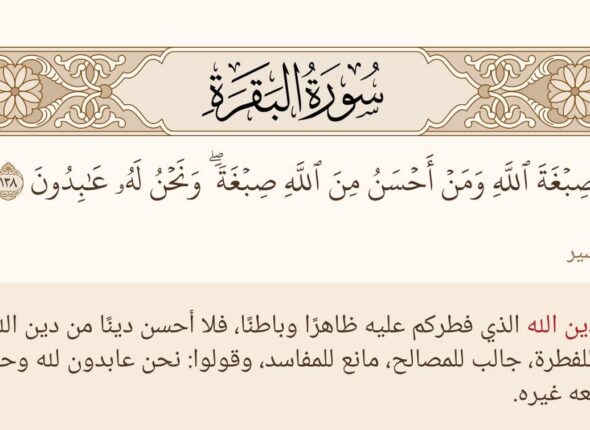 سُورَةُ البَقَرَةِ
صِبْغَةَ ٱللَّهِ وَمَنْ أَحْسَنُ مِنَ ٱللَّهِ صِبْغَةًۖ وَنَحْنُ لَهُۥ عَٰبِدُونَ ١٣٨
الله الذي فطركم عليه ظاهرًا وباطنًا، فلا أحسن دينًا من دين
للفطرة، جالب للمصالح، مانع للمفاسد، وقولوا: نحن عابدون لله
غيره.